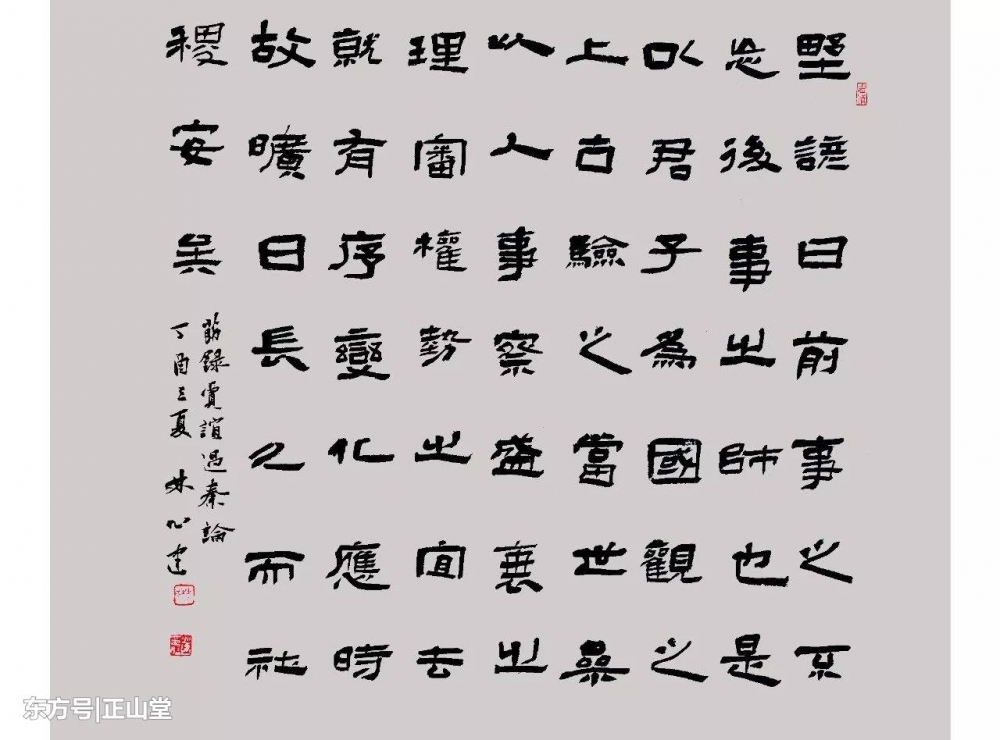 野諺曰前事之不
忘後事之師也是
以君子為國觀之
上古驗之當世參
以人事察盛衰之
理審權勢之宜去
就有序變化應時
故曠日長久而社
稷安矣
節錄賈誼過秦論
丁酉夏
东方号|正山堂